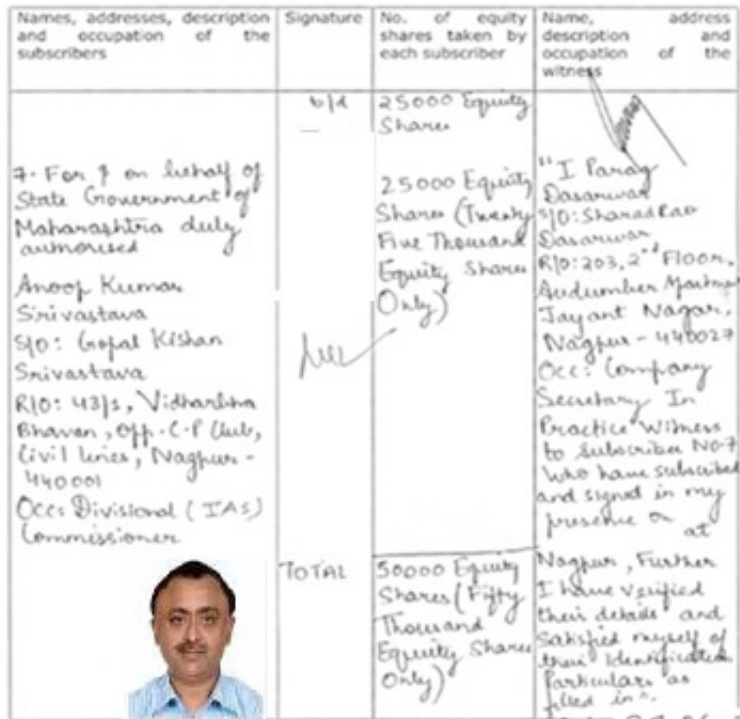 Names, addresses, description
and occupation of the
subscribers
Signature
No. of equity
shares taken by
each subscriber
Name, address
description and
occupation of the
witness
b/d
25000 Equity
Shares
7. For & on behalf of
State Government of
Maharashtra duly
authorised
Anoop Kumar
Srivastava
S/O: Gopal Kishan
Srivastava
R/O: 43/1, Vidharbha
Bhavan, Opp. C.P Club,
Civil lines, Nagpur-
440001
Occ: Divisional (IAS)
Commissioner
25000 Equity
Shares (Twenty
Five Thousand
Equity Shares
Only)
"I Parag
Dasarwar
S/O: Sharad Rao
Dasarwar
R/O: 203, 2nd Floor,
Audumber
Jayant Nagar,
Nagpur - 440027
Occ: Company
Secretary In
Practice Witness
to subscriber No-7
who have subscribed
and signed in my
presence on at
Nagpur, Further
I have verified
their details and
satisfied myself of
their Identification
Particulars as
filled in".
TOTAL
50000 Equity
Shares (Fifty
Thousand
Equity Shares
Only)